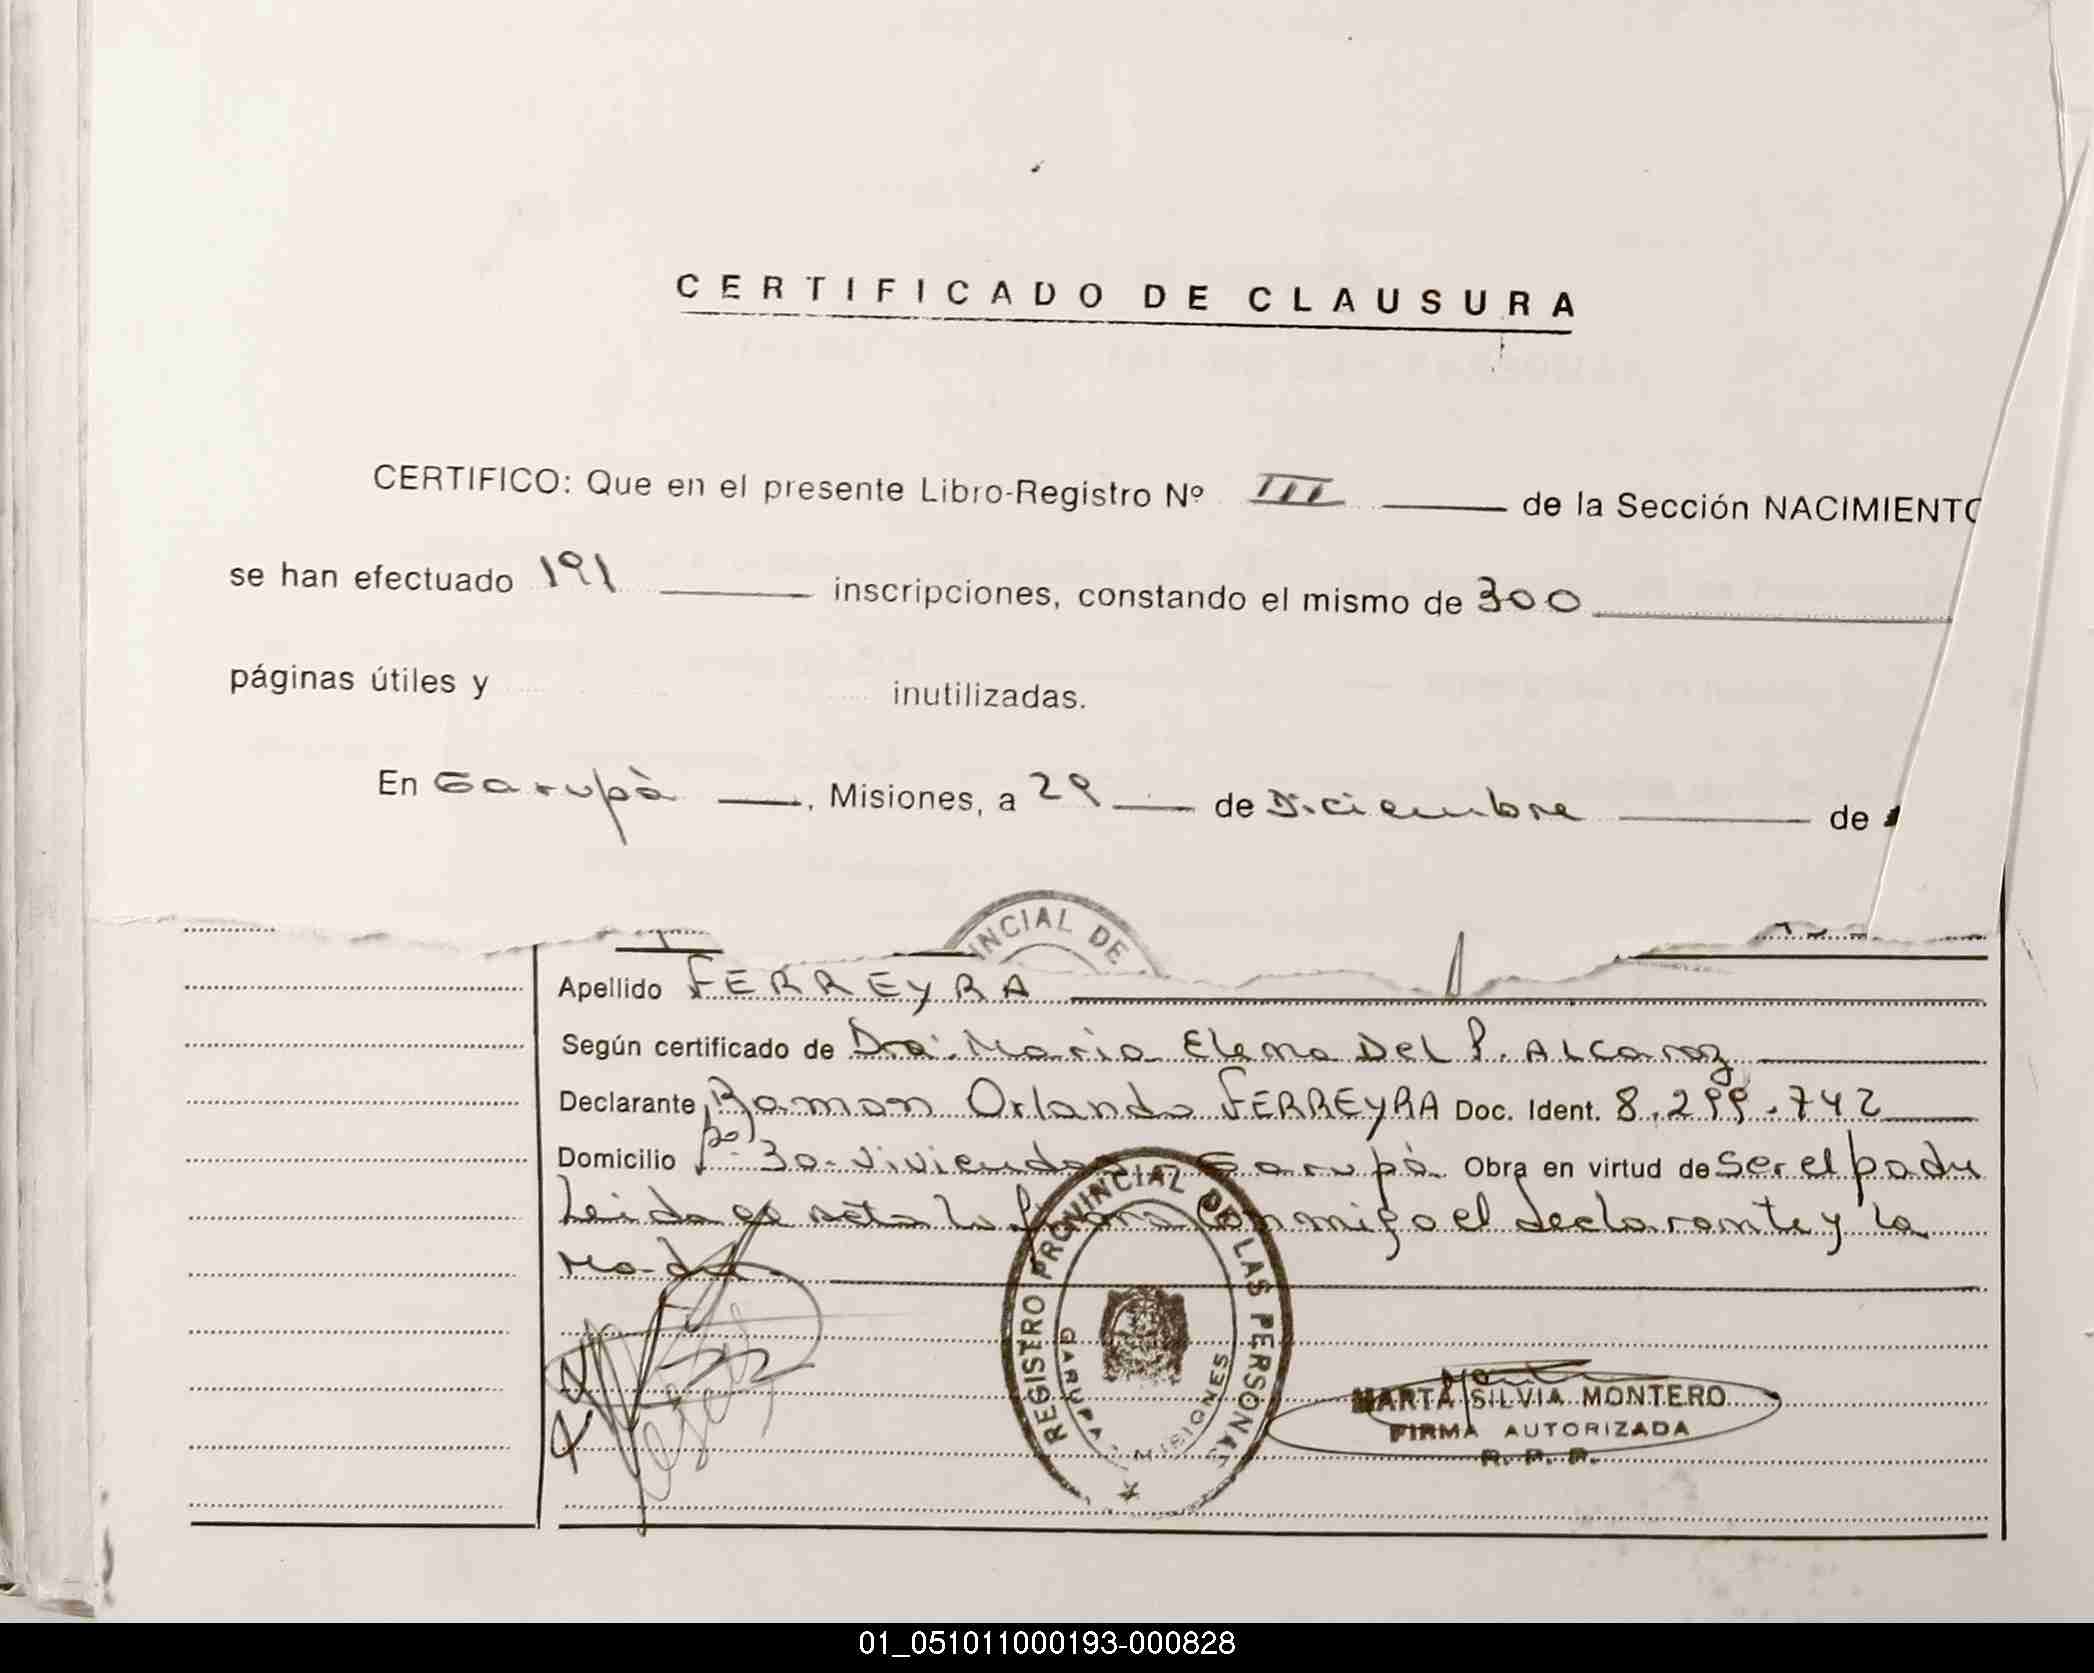 CERTIFICADO DE CLAUSURA
CERTIFICO: Que en el presente Libro-Registro Nº III de la Sección NACIMIENTO
se han efectuado 191 inscripciones, constando el mismo de 300
páginas útiles y inutilizadas.
En Garupà, Misiones, a 29 de Diciembre de
INCIAL DE
Apellido FERREYRA
Según certificado de Dra. Maria Elena Del P. ALCaraz
Declarante Ramon Orlando FERREYRA Doc. Ident. 8.299.742
Domicilio 30 viviendas Garupà Obra en virtud de Ser el padre
Leida el acta la firma conmigo el declarante y la
Madre
REGISTRO PROVINCIAL DE LAS PERSONAS
GARUPA - MISIONES
MARTA SILVIA MONTERO
FIRMA AUTORIZADA
R. P. P.
01_051011000193-000828